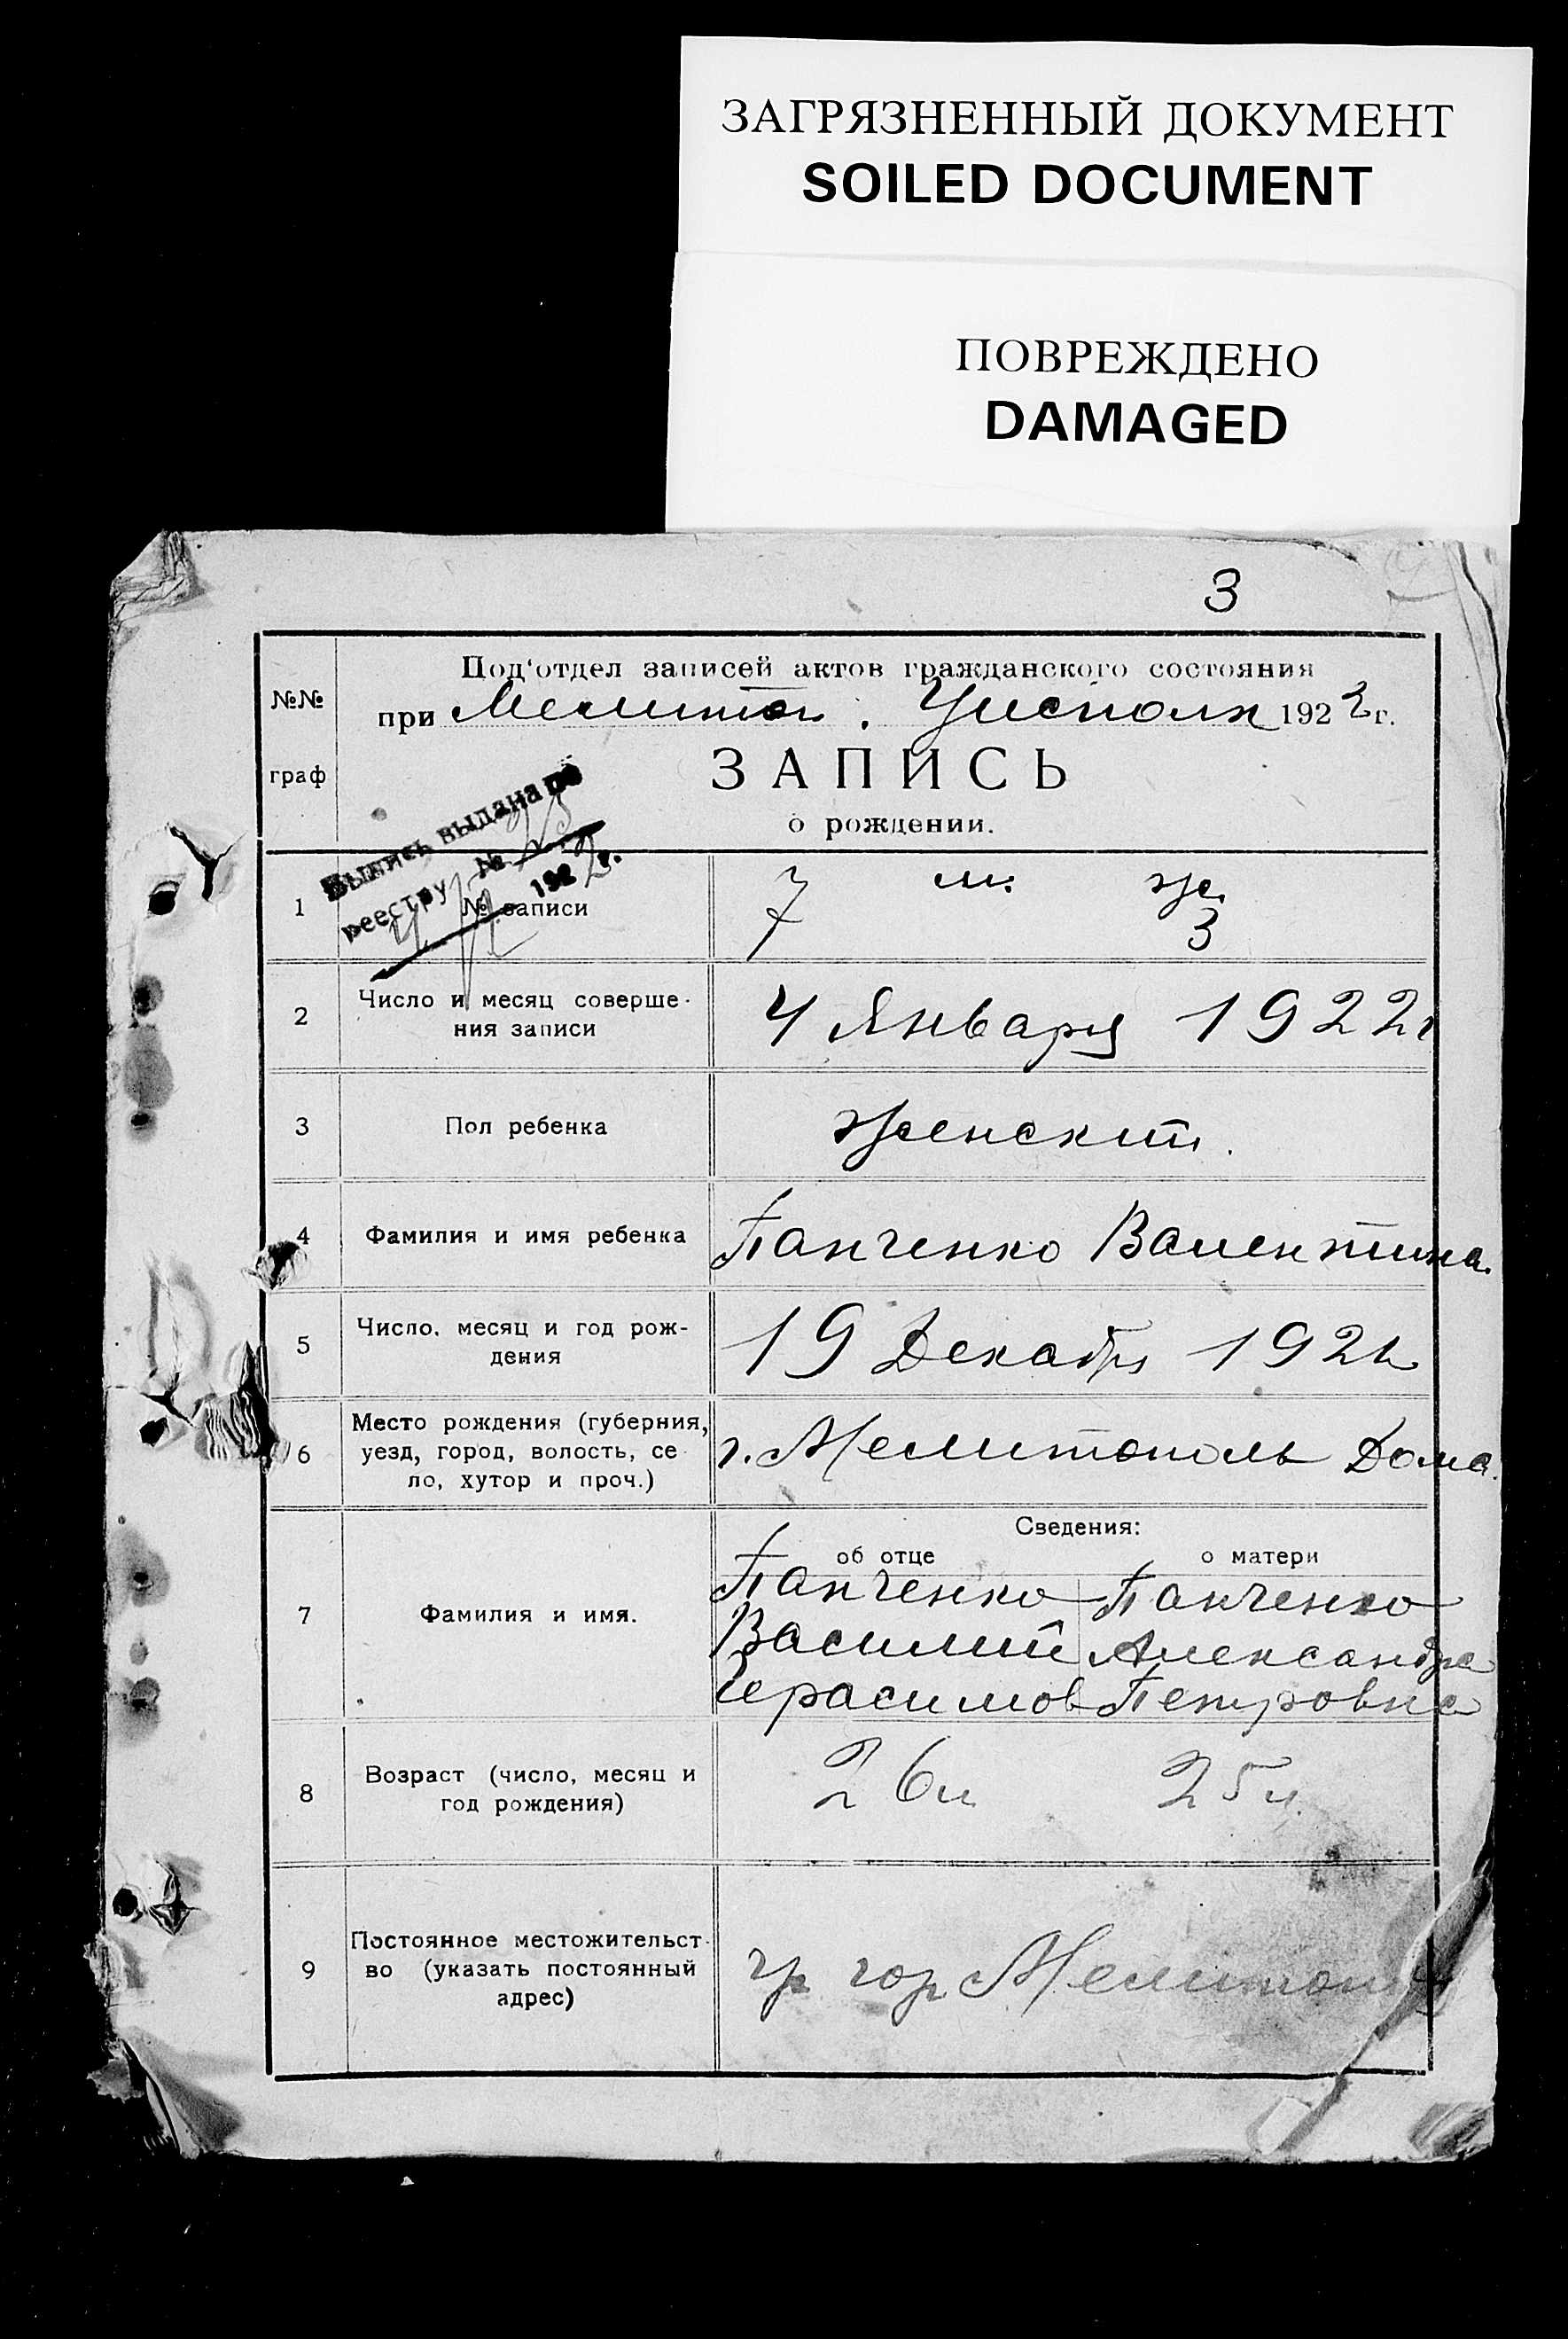 ЗАГРЯЗНЕННЫЙ ДОКУМЕНТ
SOILED DOCUMENT
ПОВРЕЖДЕНО
DAMAGED
3
№№
граф
Под'отдел записей актов гражданского состояния
при Мелитоп. Уисполк 1922 г.
ЗАПИСЬ
о рождении.
Выпись выдана по
реестру №
192 2 г.
1 № записи 7 м. ж.
3
2 Число и месяц соверше-
ния записи 4 Января 1922 г
3 Пол ребенка женский.
4 Фамилия и имя ребенка Панченко Валентина.
5 Число, месяц и год рож-
дения 19 Декабря 1921
6 Место рождения (губерния,
уезд, город, волость, се-
ло, хутор и проч.) г. Мелитополь Дома.
Сведения:
об отце о матери
7 Фамилия и имя. Панченко Панченко
Василий Александра
Герасимов Петровна
8 Возраст (число, месяц и
год рождения) 26 л 25 л.
9 Постоянное местожительст-
во (указать постоянный
адрес) гр гор Мелитополя